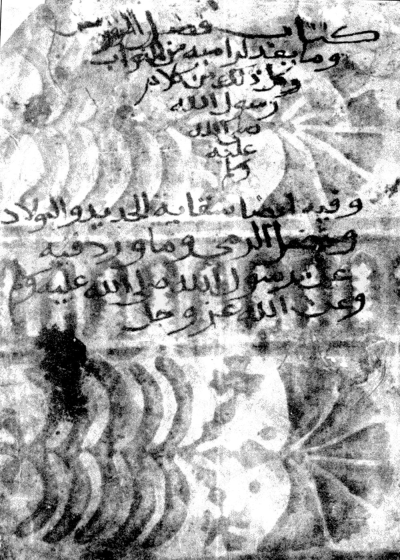 كتاب فضل القوس
وما يفند لراميه من الثواب
وكل ذلك من كلام
رسول الله
صلى الله
عليه
وسلم
وفيه ايضا سقاية الحديد والبولاد
وفضل الرمي وما ورد فيه
عن رسول الله صلى الله عليه وسلم
وعن الله عز وجل